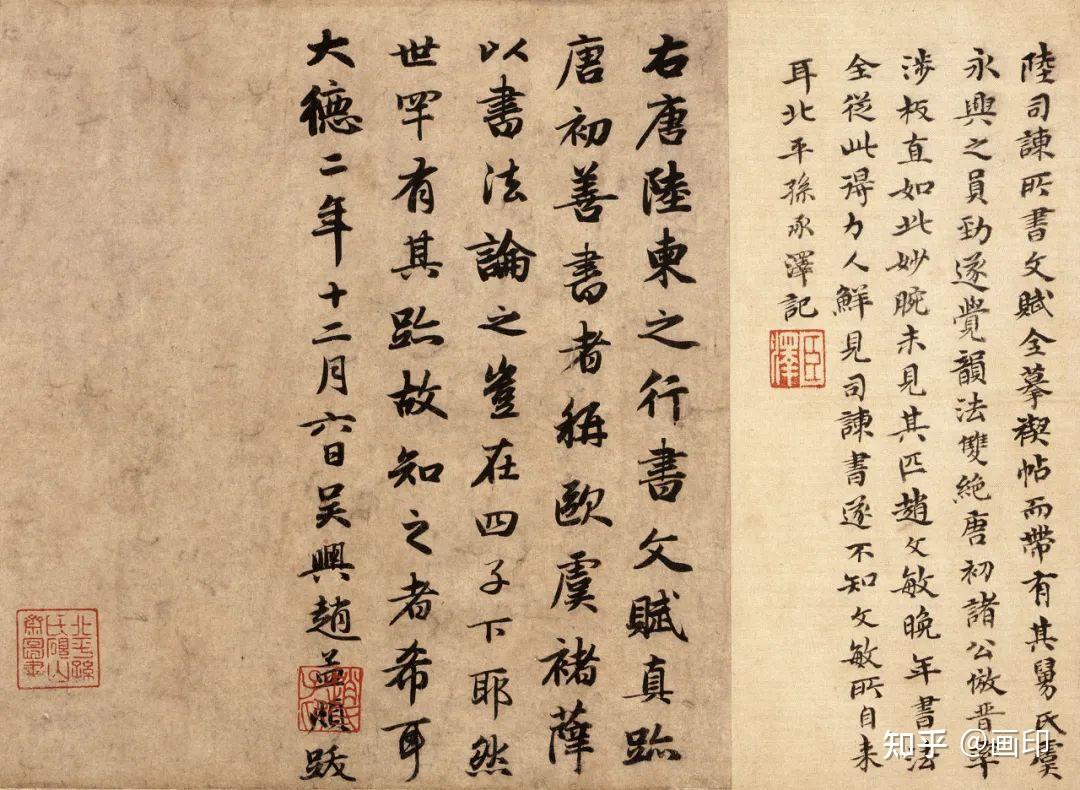 陸司諫所書文賦全摹禊帖而帶有其舅氏虞
永興之員勁遂覺韻法雙絶唐初諸公倣晉率
涉板直如此妙腕未見其匹趙文敏晚年書法
全從此得力人鮮見司諫書遂不知文敏所自来
耳北平孫承澤記
臣澤
右唐陸柬之行書文賦真跡
唐初善書者稱歐虞褚薛
以書法論之豈在四子下耶然
世罕有其跡故知之者希耳
大德二年十二月六日吴興趙孟頫跋
北平孫
氏研山
齋圖書
知乎 @画印